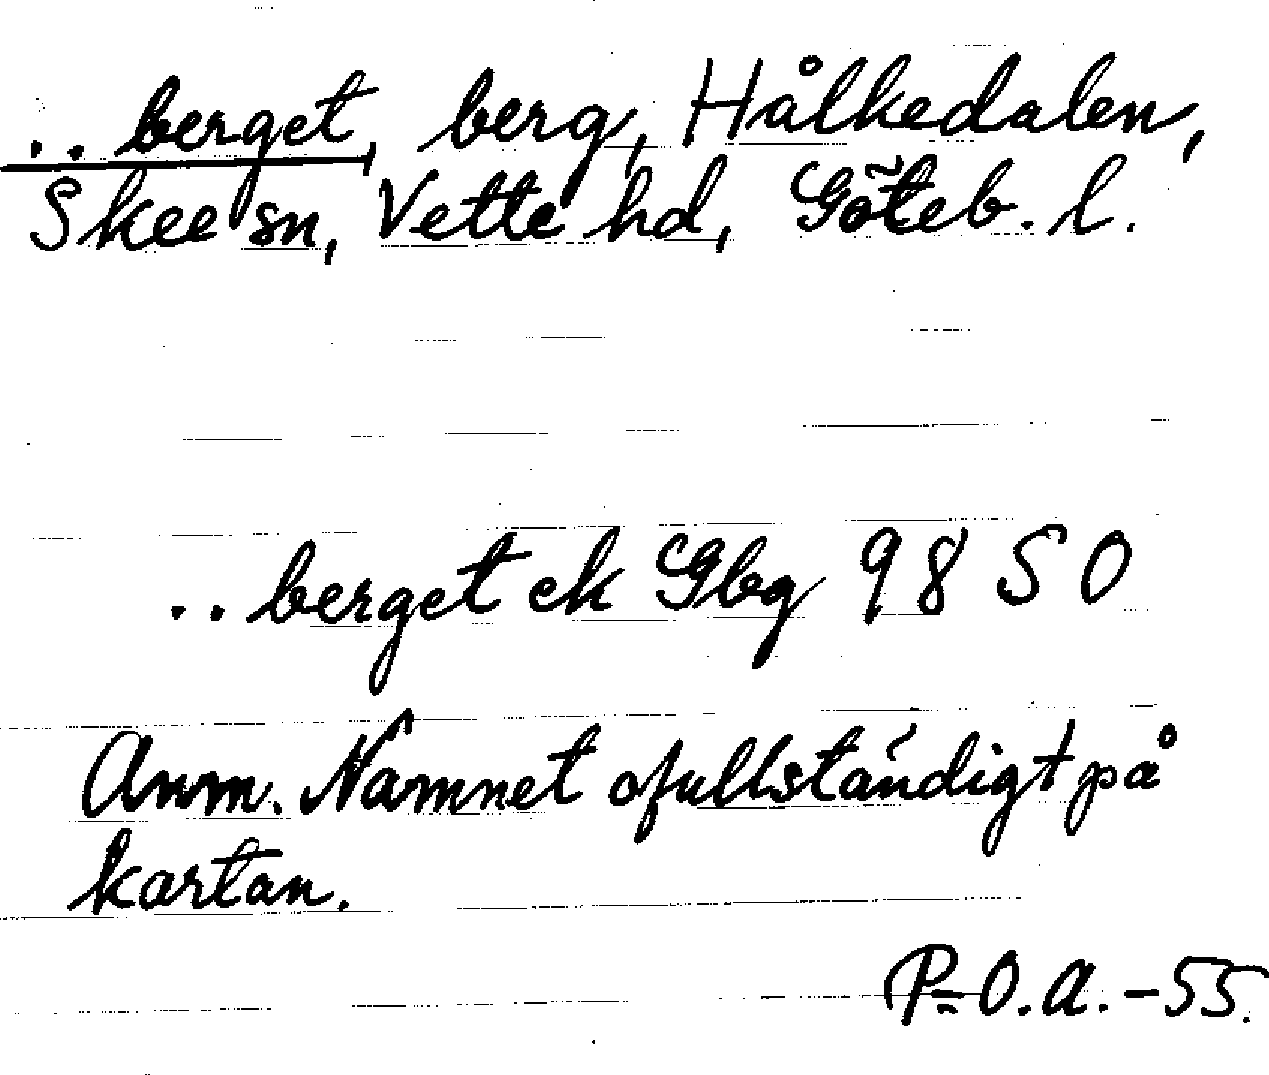 ..berget, berg, Hålkedalen,
Skee sn, Vette hd, Göteb. l.
..berget ek Gbg 98 SO
Anm. Namnet ofullständigt på
kartan.
P-O.A.-55.